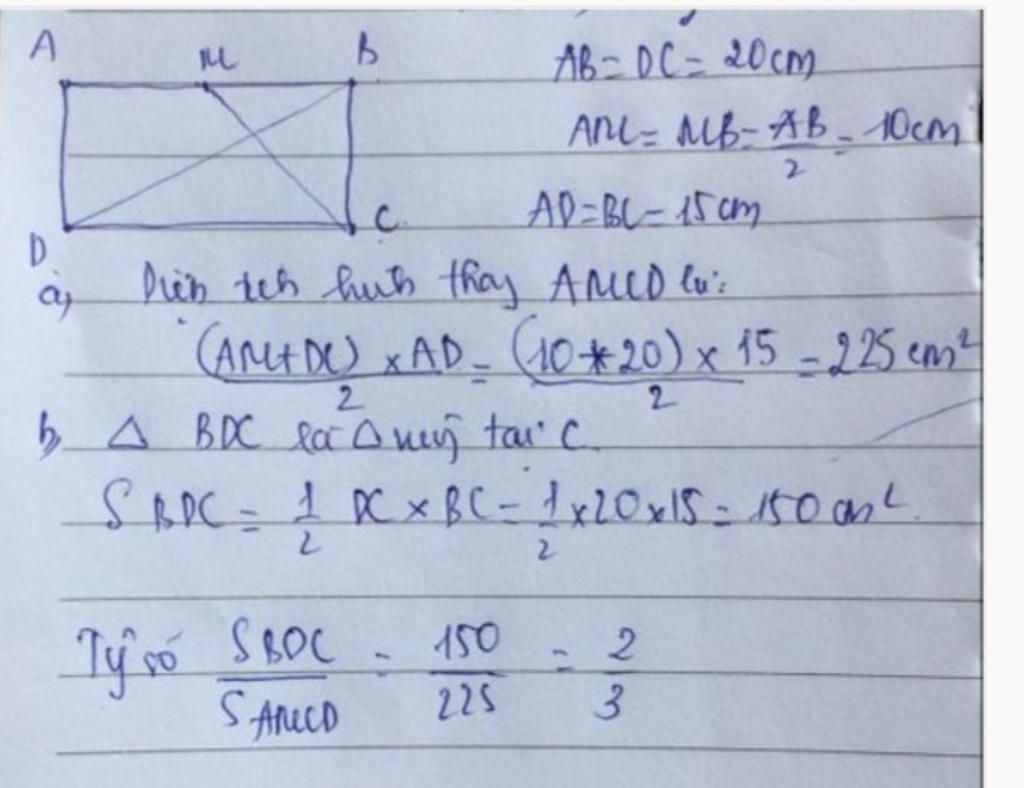 A M B
AB = DC = 20cm
AM = MB = AB/2 = 10cm
D C
AD = BC = 15cm
a, Diện tích hình thang AMCD là:
(AM+DC) x AD / 2 = (10+20) x 15 / 2 = 225 cm²
b, Δ BDC là Δ vuông tại C.
S BDC = 1/2 DC x BC = 1/2 x 20 x 15 = 150 cm².
Tỷ số S BDC / S AMCD = 150/225 = 2/3